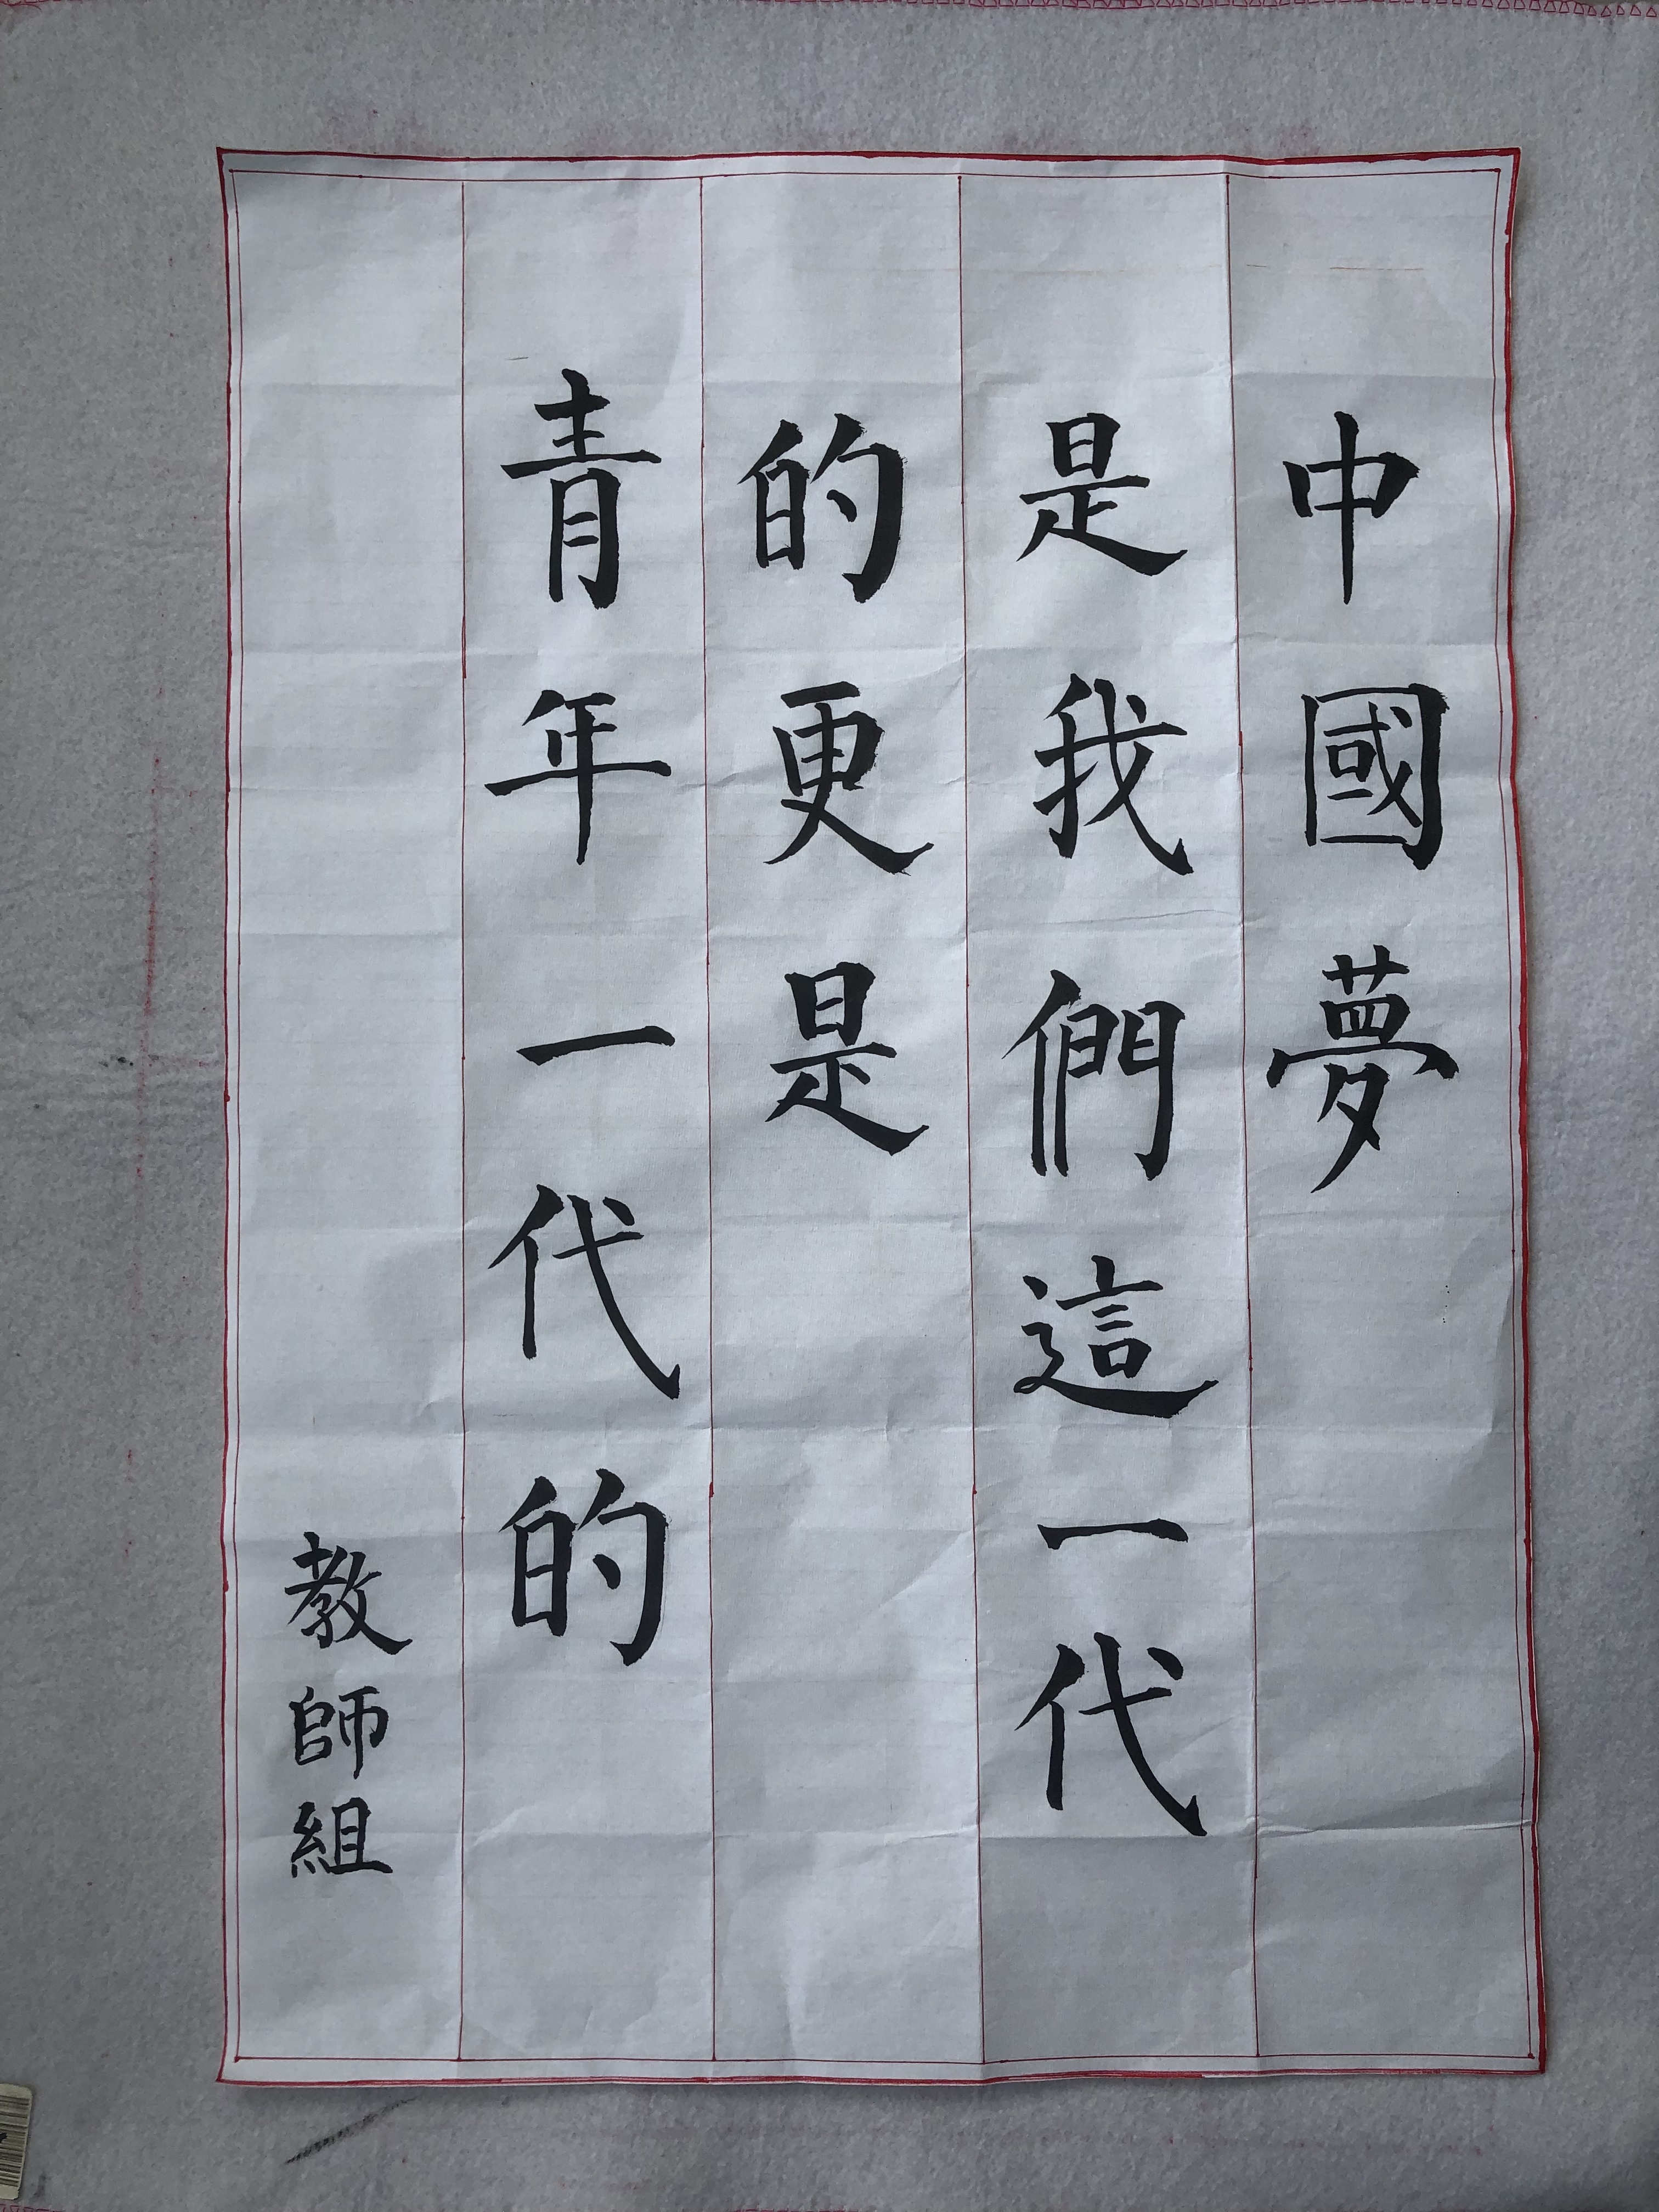 中國夢
是我們這一代
的更是
青年一代的
教師組